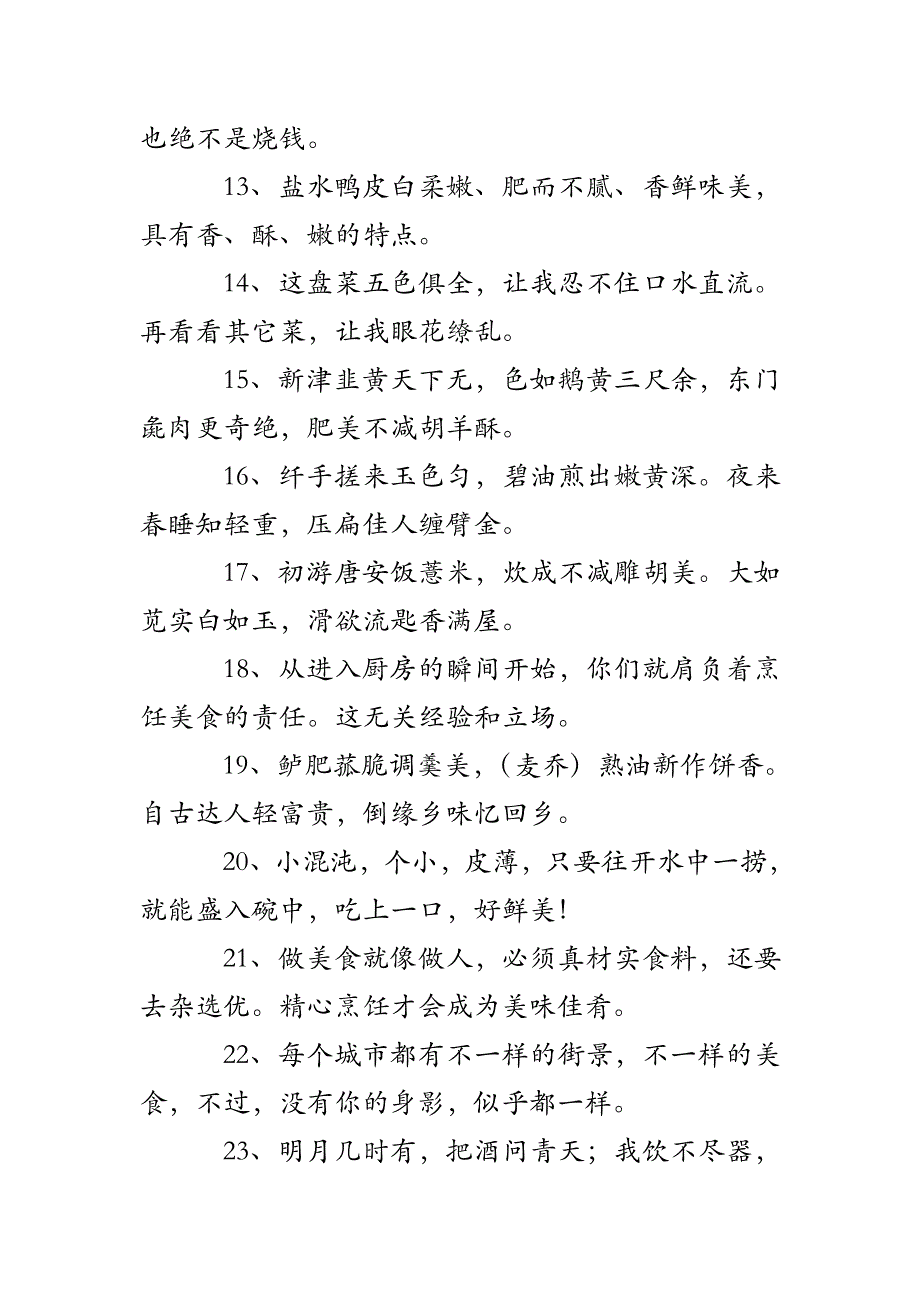 也绝不是烧钱。
13、盐水鸭皮白柔嫩、肥而不腻、香鲜味美，
具有香、酥、嫩的特点。
14、这盘菜五色俱全，让我忍不住口水直流。
再看看其它菜，让我眼花缭乱。
15、新津韭黄天下无，色如鹅黄三尺余，东门
彘肉更奇绝，肥美不减胡羊酥。
16、纤手搓来玉色匀，碧油煎出嫩黄深。夜来
春睡知轻重，压扁佳人缠臂金。
17、初游唐安饭薏米，炊成不减雕胡美。大如
苋实白如玉，滑欲流匙香满屋。
18、从进入厨房的瞬间开始，你们就肩负着烹
饪美食的责任。这无关经验和立场。
19、鲈肥菰脆调羹美，（麦乔）熟油新作饼香。
自古达人轻富贵，倒缘乡味忆回乡。
20、小混沌，个小，皮薄，只要往开水中一捞，
就能盛入碗中，吃上一口，好鲜美！
21、做美食就像做人，必须真材实食料，还要
去杂选优。精心烹饪才会成为美味佳肴。
22、每个城市都有不一样的街景，不一样的美
食，不过，没有你的身影，似乎都一样。
23、明月几时有，把酒问青天；我饮不尽器，